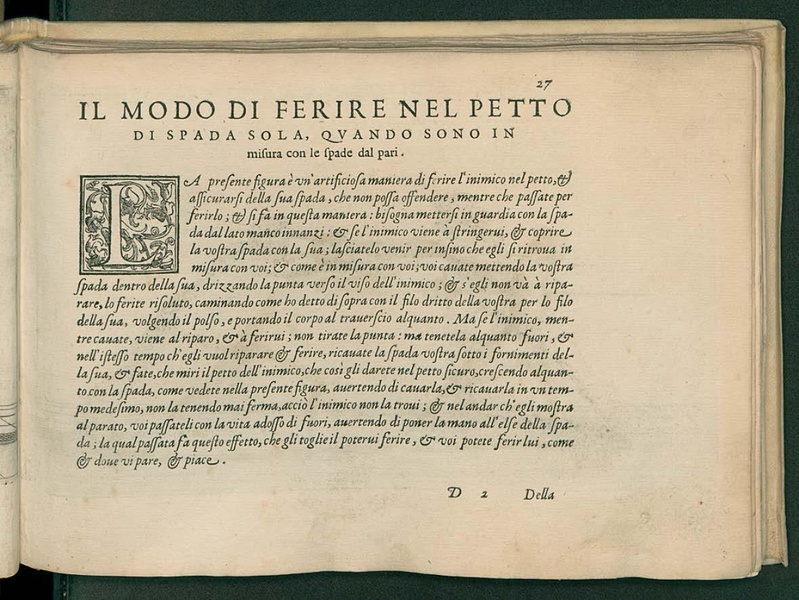 27
IL MODO DI FERIRE NEL PETTO
DI SPADA SOLA, QVANDO SONO IN
misura con le spade dal pari.
LA presente figura è vn'artificiosa maniera di ferire l'inimico nel petto, &
assicurarsi della sua spada, che non possa offendere, mentre che passate per
ferirlo; & si fa in questa maniera: bisogna mettersi in guardia con la spa-
da dal lato manco innanzi: & se l'inimico viene à stringerui, & coprire
la vostra spada con la sua; lasciatelo venir per insino che egli si ritroua in
misura con voi; & come è in misura con voi; voi cauate mettendo la vostra
spada dentro della sua, drizzando la punta verso il viso dell'inimico; & s'egli non và à ripa-
rare, lo ferite risoluto, caminando come ho detto di sopra con il filo dritto della vostra per lo filo
della sua, volgendo il polso, e portando il corpo al trauerscio alquanto. Ma se l'inimico, men-
tre cauate, viene al riparo, & à ferirui; non tirate la punta: ma tenetela alquanto fuori, &
nell'istesso tempo ch'egli vuol riparare & ferire, ricauate la spada vostra sotto i fornimenti del-
la sua, & fate, che miri il petto dell'inimico, che così gli darete nel petto sicuro, crescendo alquan-
to con la spada, come vedete nella presente figura, auertendo di cauarla, & ricauarla in vn tem-
po medesimo, non la tenendo mai ferma, acciò l'inimico non la troui; & nel andar ch'egli mostra
al parato, voi passateli con la vita adosso di fuori, auertendo di poner la mano all'else della spa-
da; la qual passata fa questo effetto, che gli toglie il poterui ferire, & voi potete ferir lui, come
& doue vi pare, & piace.
D 2 Della